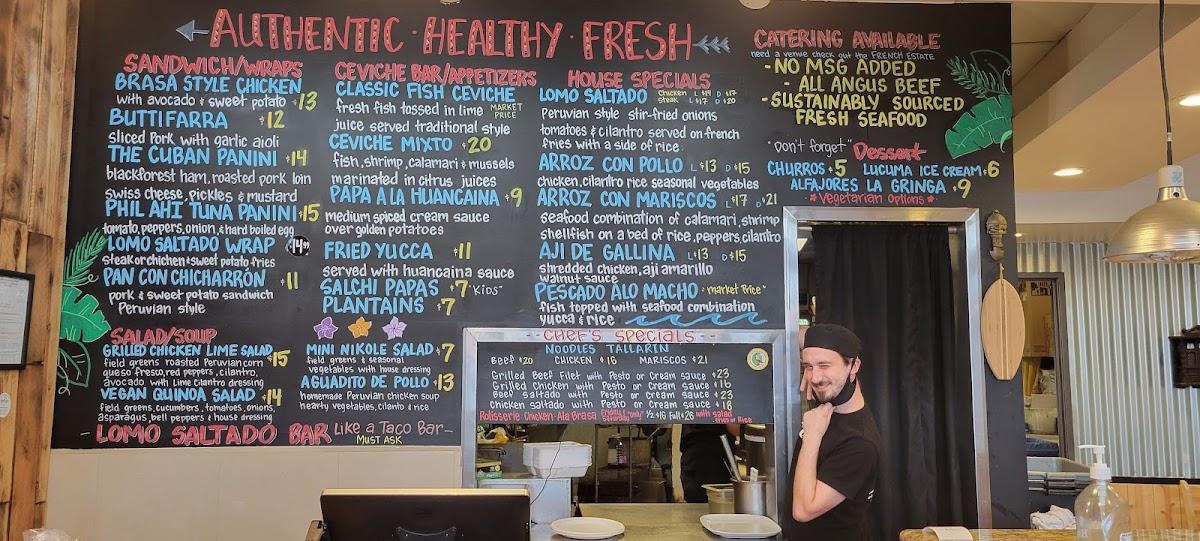 AUTHENTIC · HEALTHY · FRESH
SANDWICH/WRAPS
BRASA STYLE CHICKEN
with avocado & sweet potato $13
BUTTIFARRA $12
sliced pork with garlic aioli
THE CUBAN PANINI $14
blackforest ham, roasted pork loin
swiss cheese, pickles & mustard
PHIL AHI TUNA PANINI $15
tomato, peppers, onion, & hard boiled egg
LOMO SALTADO WRAP $14.99
steak or chicken & sweet potato fries
PAN CON CHICHARRÓN $11
pork & sweet potato sandwich
Peruvian style
SALAD/SOUP
GRILLED CHICKEN LIME SALAD $15
field greens roasted Peruvian corn
queso fresco, red peppers, cilantro,
avocado with Lime Cilantro dressing
VEGAN QUINOA SALAD $14
field greens, cucumbers, tomatoes, onions,
asparagus, bell peppers & house dressing
CEVICHE BAR/APPETIZERS
CLASSIC FISH CEVICHE
fresh fish tossed in lime MARKET PRICE
juice served traditional style
CEVICHE MIXTO $20
fish, shrimp, calamari & mussels
marinated in citrus juices
PAPA A LA HUANCAINA $9
medium spiced cream sauce
over golden potatoes
FRIED YUCCA $11
served with huancaina sauce
SALCHI PAPAS $7 "KIDS"
PLANTAINS $7
MINI NIKOLE SALAD $7
field greens & seasonal
vegetables with house dressing
AGUADITO DE POLLO $13
homemade Peruvian chicken soup
hearty vegetables, cilantro & rice
- LOMO SALTADO BAR Like a Taco Bar -
MUST ASK
HOUSE SPECIALS
LOMO SALTADO chicken L $14 D $17
steak L $17 D $20
Peruvian style stir-fried onions
tomatoes & cilantro served on french
fries with a side of rice
ARROZ CON POLLO L $13 D $15
chicken, cilantro rice seasonal vegetables
ARROZ CON MARISCOS L $17 D $21
seafood combination of calamari, shrimp
shellfish on a bed of rice, peppers, cilantro
AJI DE GALLINA L $13 D $15
shredded chicken, aji amarillo
walnut sauce
PESCADO A LO MACHO "market Price"
fish topped with seafood combination
yucca & rice
CATERING AVAILABLE
need a venue check out the FRENCH ESTATE
- NO MSG ADDED
- ALL ANGUS BEEF
- SUSTAINABLY SOURCED
FRESH SEAFOOD
"Don't forget" Dessert
CHURROS $5 LUCUMA ICE CREAM $6
ALFAJORES LA GRINGA $9
* Vegetarian Options *
-- CHEF'S SPECIALS --
NOODLES TALLARIN
Beef $20 CHICKEN $16 MARISCOS $21
Grilled Beef Filet with Pesto or Cream Sauce $23
Grilled Chicken with Pesto or Cream Sauce $16
Beef Saltado with Pesto or Cream Sauce $23
Chicken Saltado with Pesto or Cream Sauce $18
Rotisserie Chicken - Ala Brasa Friday & Saturday "only" 1/2 $16 Full $26 with salad, fries or Rice